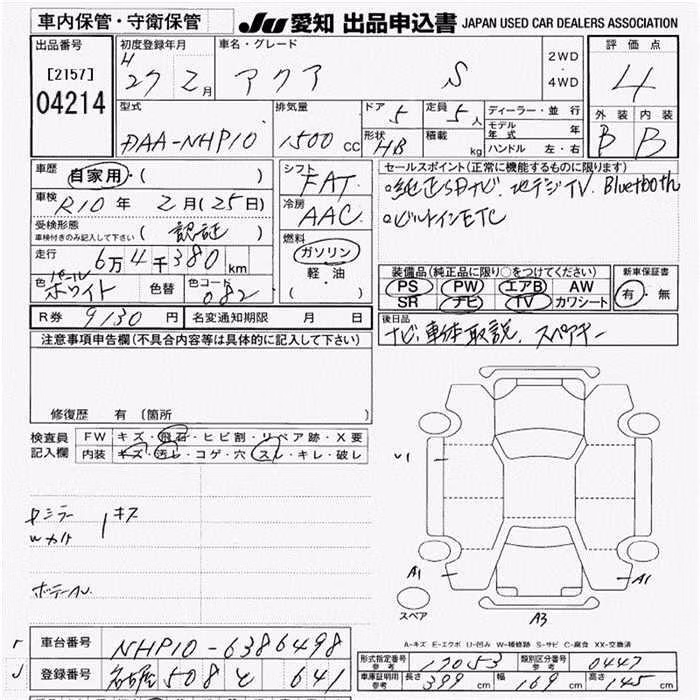 車内保管・守衛保管 JU 愛知 出品申込書 JAPAN USED CAR DEALERS ASSOCIATION
出品番号 初度登録年月 車名・グレード 2WD・4WD 評価点
[2157] H 27 2月 アクア S 4
04214 型式 排気量 ドア 5 定員 5人 ディーラー・並行 外装 内装
DAA-NHP10 1500 CC 形状 HB 積載 kg モデル年式 年 B B
ハンドル 左・右
車歴 自家用・( ) シフト FAT セールスポイント(正常に機能するものに限ります)
車検 R10年 2月(25日) 冷房 AAC ○純正SDナビ、地デジTV、Bluetooth
受検形態 車検付きのみ記入して下さい ( 認証 ) 燃料 ○ビルトインETC
走行 6万4千380km ガソリン 装備品(純正品に限り○をつけてください) 新車保証書
色 パール ホワイト 色替 色コード 082 軽・油 ( ) PS PW エアB AW 有・無
SR ナビ TV カワシート
R券 9130円 名変通知期限 月 日 後日品
ナビ、車体取説、スペアキー
注意事項申告欄(不具合内容等は具体的に記入して下さい)
修復歴 有 〔箇所 〕
検査員 FW キズ・飛石・ヒビ割・リペア跡・X要
記入欄 内装 キズ・汚レ・コゲ・穴・スレ・キレ・破レ
U1
キズ
A1 A1
スペア A3
A-キズ E-エクボ U-凹み W-補修跡 S-サビ C-腐食 XX-交換済
車台番号 NHP10-6386498 形式指定番号 参考 17053 類別区分番号 参考 0447
登録番号 名古屋 508 と 641 車庫証明用 参考 長さ 399cm 幅 169cm 高さ 145cm